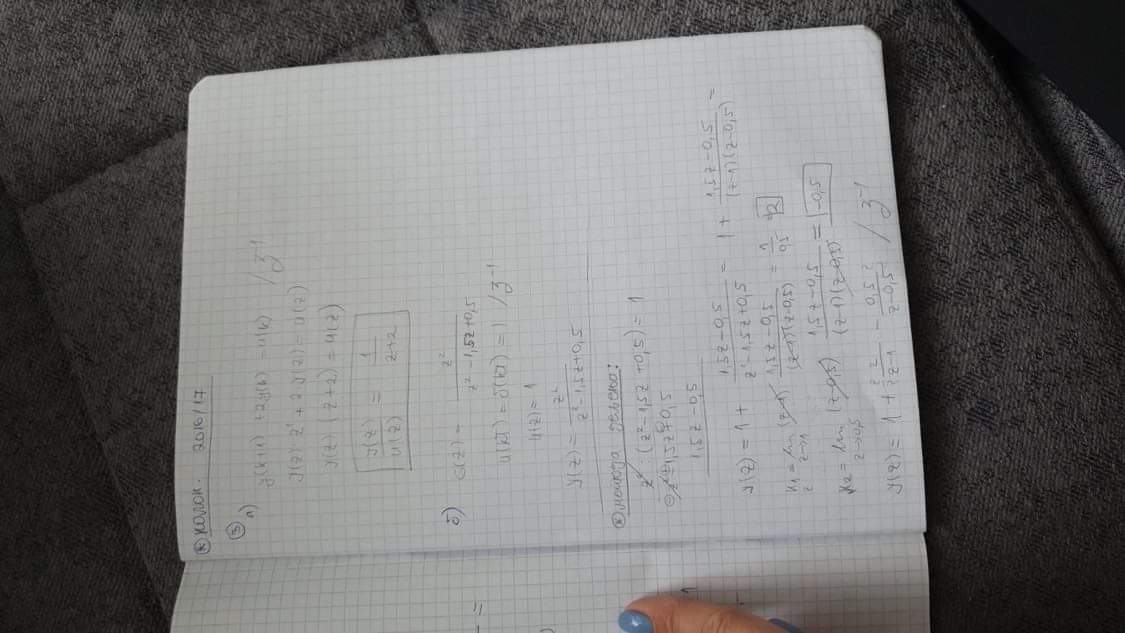 ⊛ КОЛОК. 2016/17
③ а)
y(k+1) + 2y(k) = u(k) / Z⁻¹
y(z)·z¹ + 2y(z) = u(z)
y(z) (z+2) = u(z)
y(z)/u(z) = 1/(z+2)
б) G(z) = z²/(z²-1,5z+0,5)
u(kT) = δ(kT) = 1 / Z⁻¹
u(z) = 1
y(z) = z²/(z²-1,5z+0,5)
z² : (z²-1,5z+0,5) = 1
⊖ z²-1,5z+0,5
1,5z-0,5
y(z) = 1 + (1,5z-0,5)/(z²-1,5z+0,5) = 1 + (1,5z-0,5)/((z-1)(z-0,5)) =
K₁ = lim z→1 (z-1) (1,5z-0,5)/((z-1)(z-0,5)) = 1/0,5 = 2
K₂ = lim z→0,5 (z-0,5) (1,5z-0,5)/((z-1)(z-0,5)) = -0,5
y(z) = 1 + 2/(z-1) - 0,5/(z-0,5) / Z⁻¹